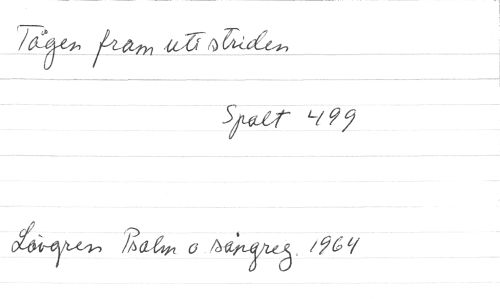 Tågen fram uti striden
Spalt 499
Lövgren Psalm o sångreg. 1964